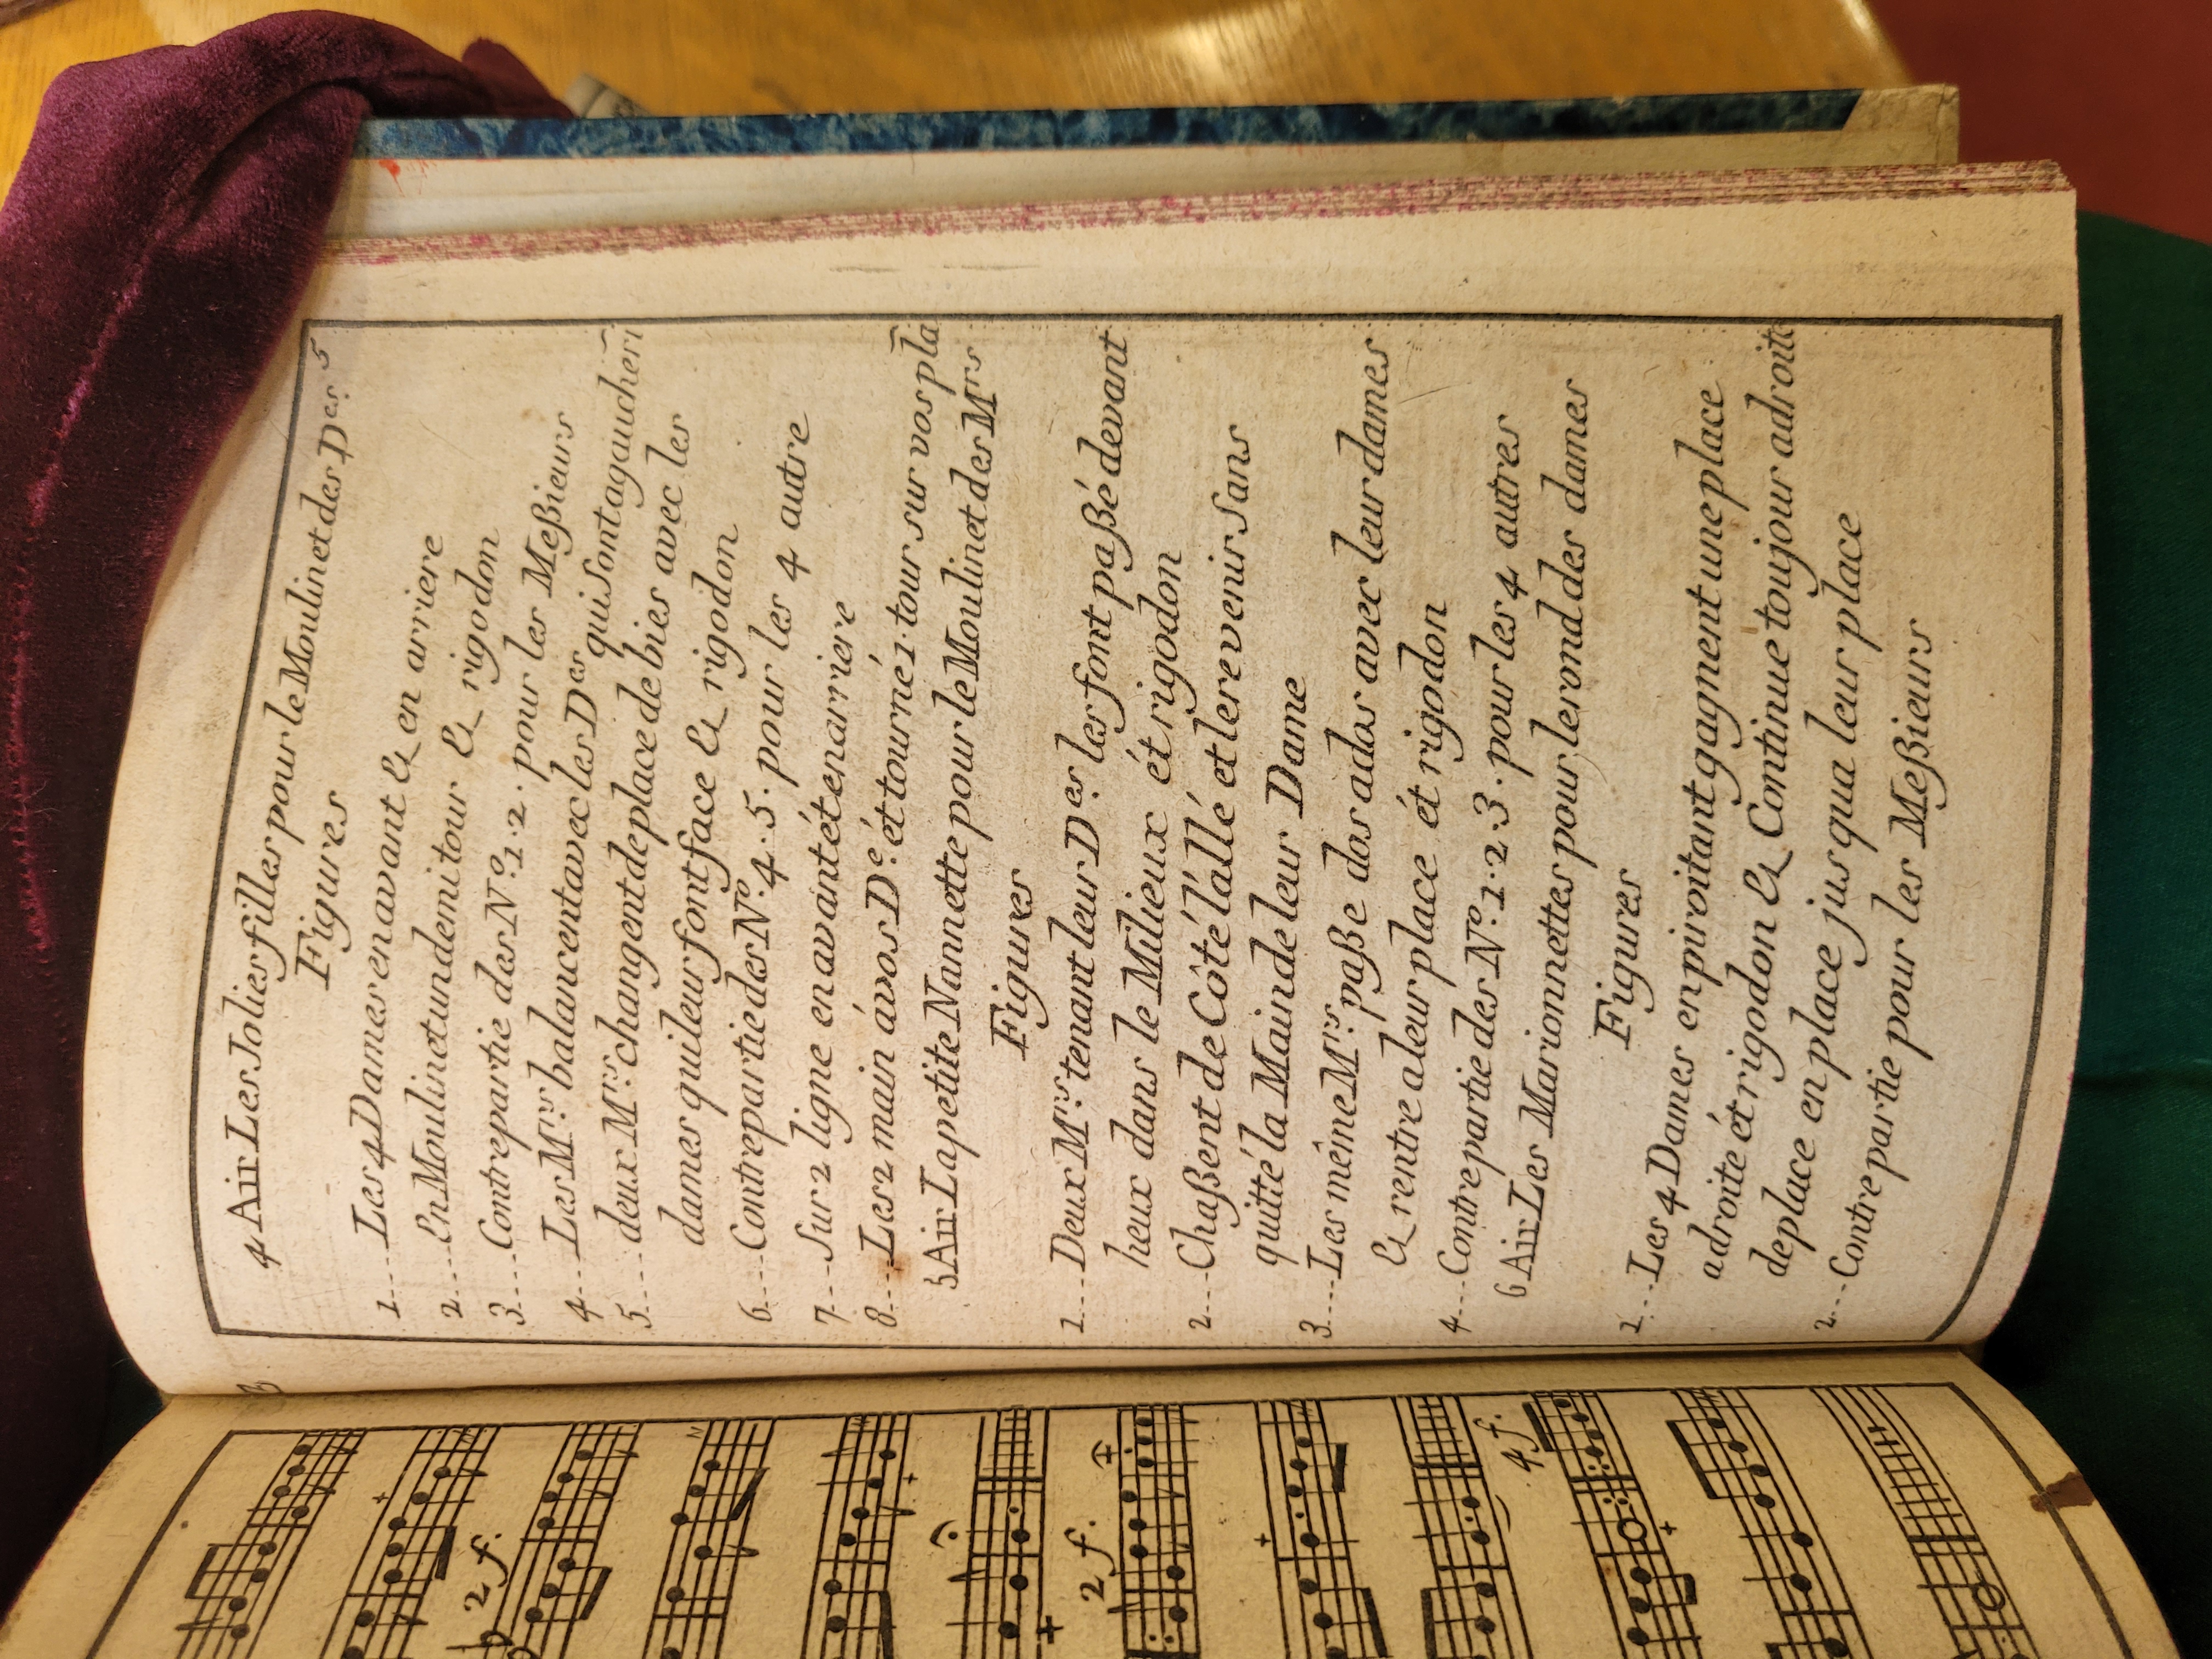 5
4 Air Les Jolies filles pour le Moulinet des Des
Figures
1....Les 4 Dames en avant & en arriere
2....En Moulinet un demi tour & rigodon
3....Contre partie des No. 1. 2. pour les Meßieurs
4....Les Mrs. balancent avec les Des qui Sont a gauche
5....deux Mrs. changent de place de bies avec les
dames qui leur font face & rigodon
6....Contre partie des No. 4. 5. pour les 4 autre
7....Sur 2 ligne en avant ét en arriere
8....Les 2 main á vos De. ét tourné 1. tour sur vos pla
5 Air La petite Nannette pour le Moulinet des Mrs
Figures
1....Deux Mrs. tenant leur Des. les font paßé devant
heux dans le Milieux ét rigodon
2....Chaßent de Côté l'allé et le revenir Sans
quitté la Main de leur Dame
3....Les même Mrs. paße dos a dos avec leur dames
& rentre a leur place ét rigodon
4....Contre partie des No. 1. 2. 3. pour les 4 autres
6 Air Les Marionnettes pour le rond des dames
Figures
1....Les 4 Dames en piroitant gagnent une place
a droite ét rigodon & Continue toujour a droite
de place en place jusqua leur place
2....Contre partie pour les Meßieurs
2 f.
2 f.
4 f.